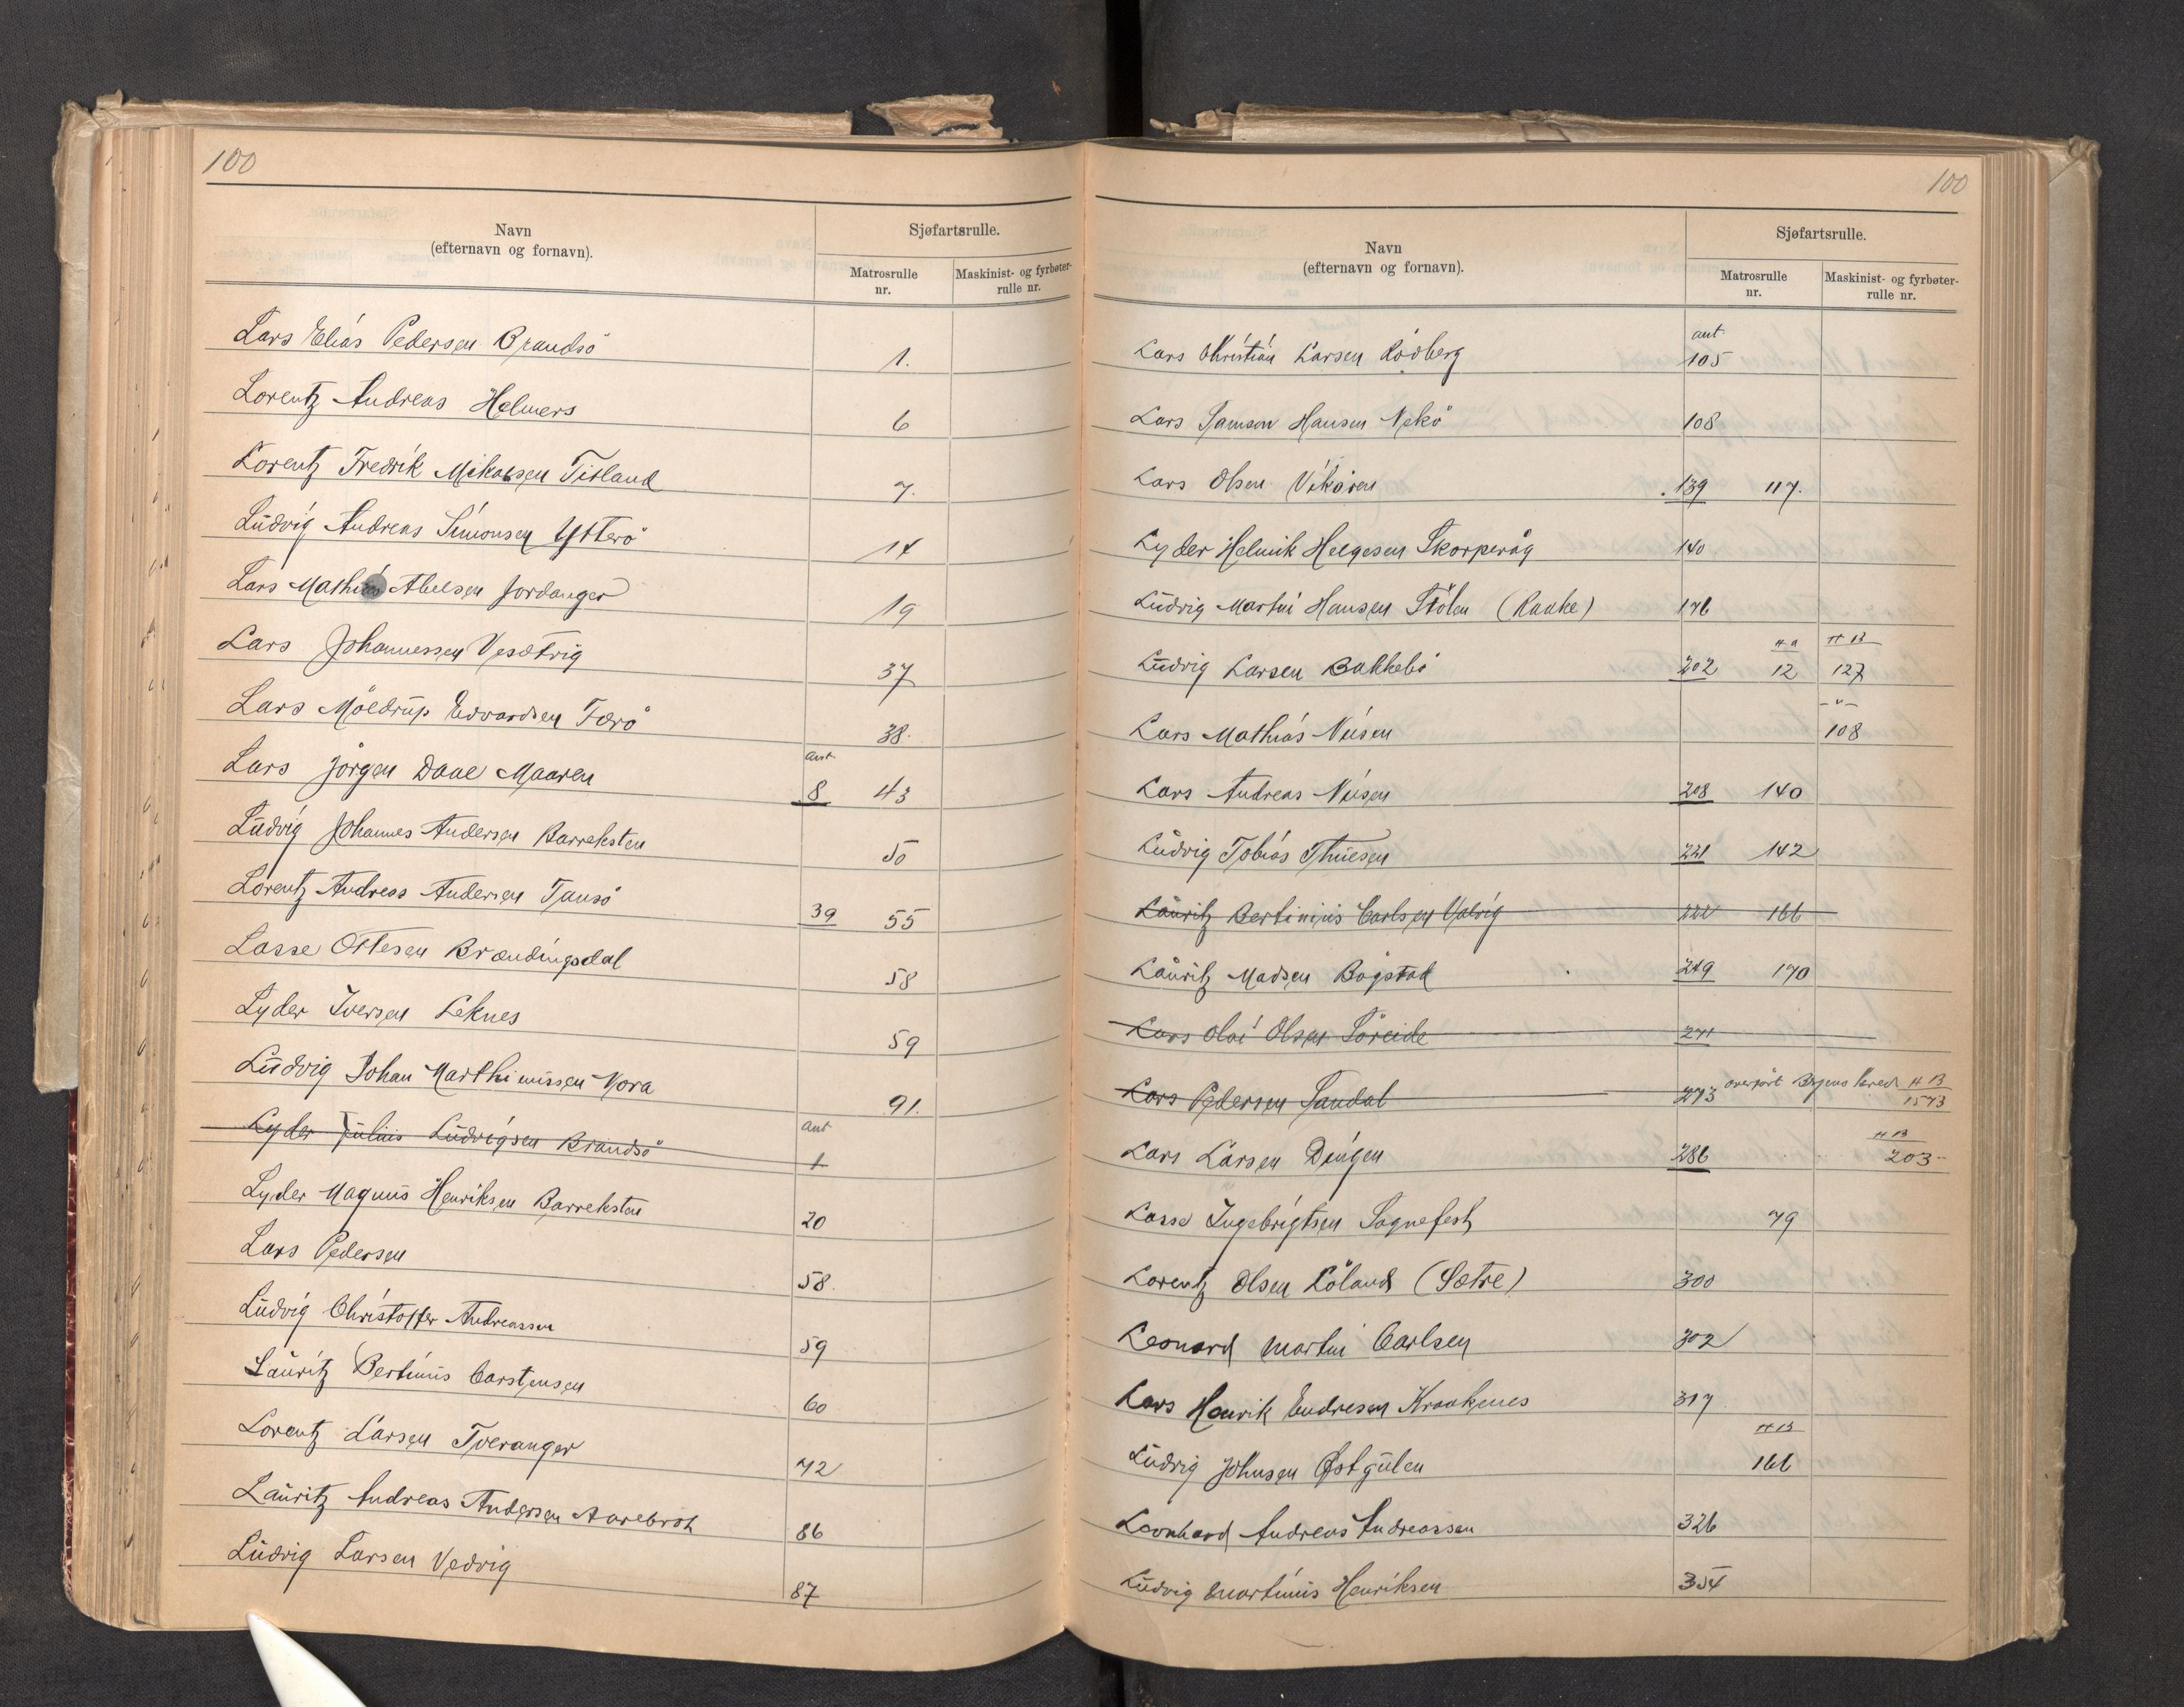 100
Navn
(efternavn og fornavn).
Sjøfartsrulle.
Matrosrulle
nr.
Maskinist- og fyrbøter-
rulle nr.
Lars Elias Pedersen Brandsö 1.
Lorentz Andreas Helmers 6
Lorentz Fredrik Mikalsen Titland 7.
Ludvig Andreas Simonsen Ytterö 14
Lars Mathias Abelsen Jordanger 19
Lars Johannessen Vesetvig 37
Lars Möldrup Edvardsen Færö 38.
Lars Jörgen Daae Maaren ant. 8 43
Ludvig Johannes Andersen Barreksten 50
Lorentz Andreas Andersen Tansö 39 55
Lasse Ottesen Brændingsdal 58
Lyder Iversen Leknes 59
Ludvig Johan Marthinussen Vora 91.
Lyder Julius Ludvigsen Brandsö ant 1
Lyder Magnus Henriksen Barreksten 20
Lars Pedersen 58.
Ludvig Christoffer Andreassen 59
Lauritz Bertinus Carstensen 60
Lorentz Larsen Tveranger 72
Lauritz Andreas Andersen Aarebrot 86
Ludvig Larsen Vedvig 87
100
Navn
(efternavn og fornavn).
Sjøfartsrulle.
Matrosrulle
nr.
Maskinist- og fyrbøter-
rulle nr.
Lars Christian Larsen Rödberg ant. 105
Lars Samson Hansen Nekö 108
Lars Olsen Vikören 139 117.
Lyder Helmik Helgesen Skorpevåg 140
Ludvig Martin Hansen Stölen (Raake) 176
Ludvig Larsen Bakkebö 202 H a 12 H B 127
Lars Mathias Nilsen -"- 108
Lars Andreas Nilsen 208 140
Ludvig Tobias Thuesen 221 142
Lauritz Bertinius Carlsen Valvig 222 166
Lauritz Madsen Bogstad 249 170
Lars Olai Olsen Söreide 271
Lars Pedersen Sandal 273 overfört Bergens krets H B 1573
Lars Larsen Dingen 286 H B 203-
Lasse Ingebrigtsen Sognefest 79
Lorentz Olsen Löland (Sætre) 300
Leonard Martin Carlsen 302
Lars Henrik Endresen Kraakenes 317
Ludvig Johnsen Østgulen H B 166
Leonhard Andreas Andreassen 326
Ludvig Martinus Henriksen 354